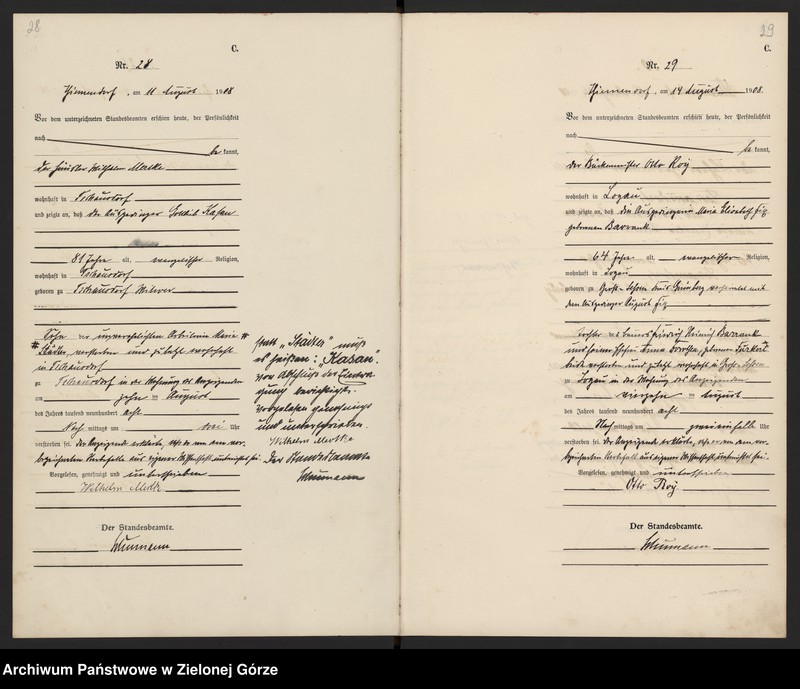 28
C.
Nr. 28
am 11 August 1908
Vor dem unterzeichneten Standesbeamten erschien heute, der Persönlichkeit
nach
be kannt,
der Häusler Wilhelm
wohnhaft in Tschausdorf
und zeigte an, daß der Ausgedinger Kasan
81 Jahre alt, evangelischer Religion,
wohnhaft in Tschausdorf
geboren zu Tschausdorf Witwer
Sohn der unverehelichten Arbeiterin Marie #
# Städter, verstorben und zuletzt wohnhaft
in Tschausdorf
zu Tschausdorf in der Wohnung des Anzeigenden
am zehn ten August
des Jahres tausend neunhundert acht
Nach mittags um drei Uhr
verstorben sei. Der Anzeigende erklärte, daß er von dem vor-
bezeichneten Sterbefalle aus eigener Wissenschaft unterrichtet sei
Vorgelesen, genehmigt und unterschrieben
Wilhelm
Der Standesbeamte.
Schumann
statt „Städter" muß
es heißen: „Kasan"
vor Abschluß der Eintra-
gung berichtigt.
Vorgelesen genehmigt
und unterschrieben.
Wilhelm
Der Standesbeamte
Schumann
29
C.
Nr. 29
am 14 August 1908.
Vor dem unterzeichneten Standesbeamten erschien heute, der Persönlichkeit
nach
be kannt,
der Otto Roy
wohnhaft in Logau
und zeigte an, daß die Ausgedingerin Maria Elisabeth
geborene Barrank
64 Jahre alt, evangelischer Religion,
wohnhaft in Logau
geboren zu Kreis Grünberg verheiratet mit
dem Ausgedinger August
Tochter des Friedrich Heinrich Barrank
und seiner Ehefrau Anna Dorothea, geborenen
beide verstorben und zuletzt wohnhaft in
zu Logau in der Wohnung des Anzeigenden
am vierzehn ten August
des Jahres tausend neunhundert acht
Nach mittags um zweieinhalb Uhr
verstorben sei. Der Anzeigende erklärte, daß er von dem vor-
bezeichneten Sterbefall aus eigener Wissenschaft unterrichtet sei.
Vorgelesen, genehmigt und unterschrieben
Otto Roy
Der Standesbeamte.
Schumann
Archiwum Państwowe w Zielonej Górze